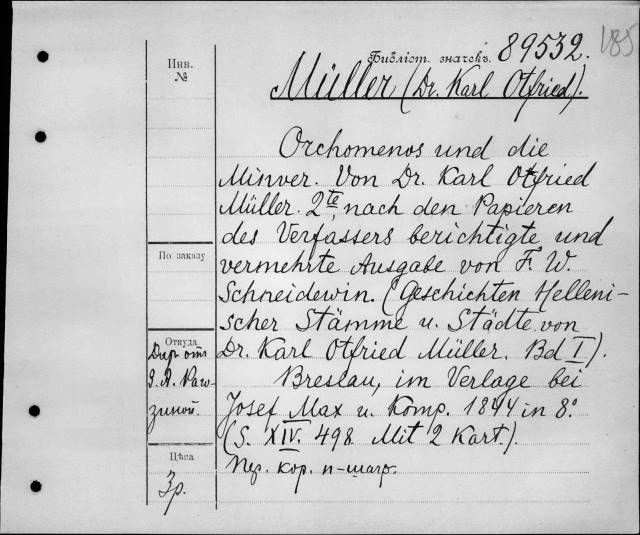 185
Инв.
№
Библіот. значекъ. 89532.
Müller (Dr. Karl Otfried).
Orchomenos und die
Minyer. Von Dr. Karl Otfried
Müller. 2te, nach den Papieren
des Verfassers berichtigte und
vermehrte Ausgabe von F. W.
Schneidewin. (Geschichten Helleni-
scher Stämme u. Städte von
Dr. Karl Otfried Müller. Bd I).
Breslau, im Verlage bei
Josef Max u. Komp. 1844 in 8º
(S. XIV. 498. Mit 2 Kart.).
Пер. кор. п-шагр.
По заказу
Откуда
Дар отъ
Цѣна
3р.